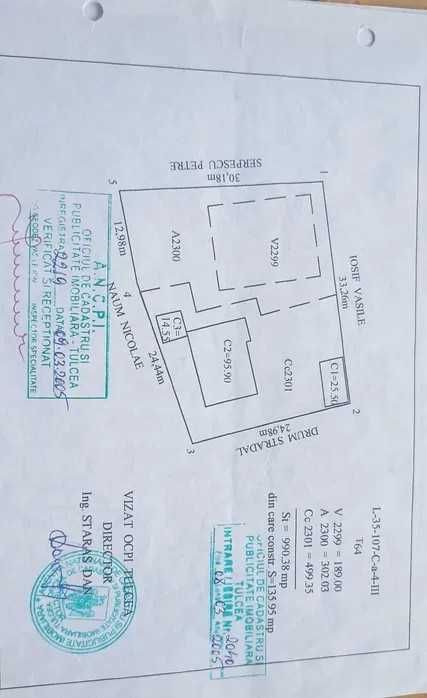 L-35-107-C-a-4-III
T64
V 2299 = 189.00
A 2300 = 302.03
Cc 2301 = 499,35
St = 990.38 mp
din care constr. S=135.95 mp
1
IOSIF VASILE
33,26m
2
C1=25.50
SERPESCU PETRE
30,18m
V2299
Cc2301
DRUM STRADAL
24,98m
A2300
C2=95.90
C3=
14.55
5
12,98m
4
NAUM NICOLAE
24,44m
3
OFICIUL DE CADASTRU SI
PUBLICITATE IMOBILIARA
TULCEA
INTRARE
Nr. 2040
2005
A.N.C.P.I.
OFICIUL DE CADASTRU SI
PUBLICITATE IMOBILIARA - TULCEA
INREGISTRAT 2219 DATA 09.03.2005
VERIFICAT SI RECEPTIONAT
INSPECTOR SPECIALITATE
VIZAT OCPI TULCEA
DIRECTOR
Ing. STARAS DAN